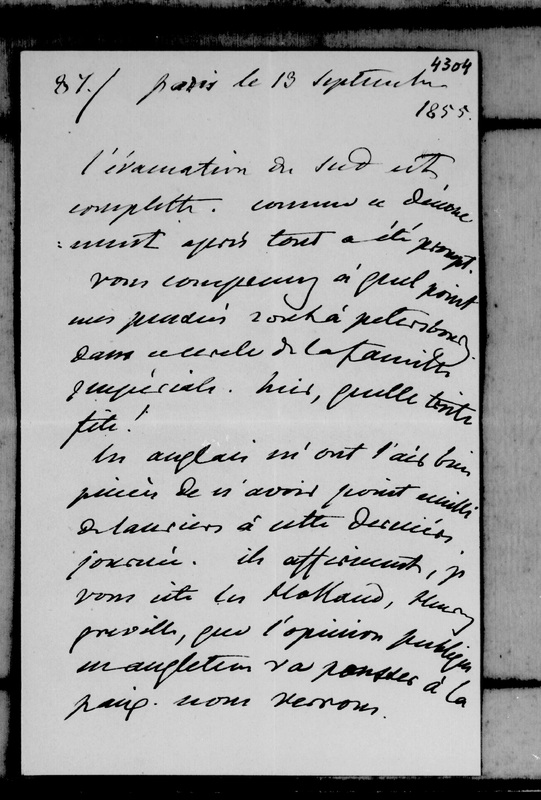 4304
87./ paris le 13 septembre
1855.
l'évacuation du sud est
complette. comme ce dénoue
=ment après tout a été prompt.
vous comprenez à quel point
mes pensées sont à petersbourg
dans ce cercle de la famille
impériale. hier, quelle triste
fête!
les anglais m'ont l'air bien
piqués de n'avoir point cueilli
de lauriers à cette dernière
journée. ils affirment, je
vous cite les Holland, Henry
greville, que l'opinion publique
en angleterre va pousser à la
paix. nous verrons.